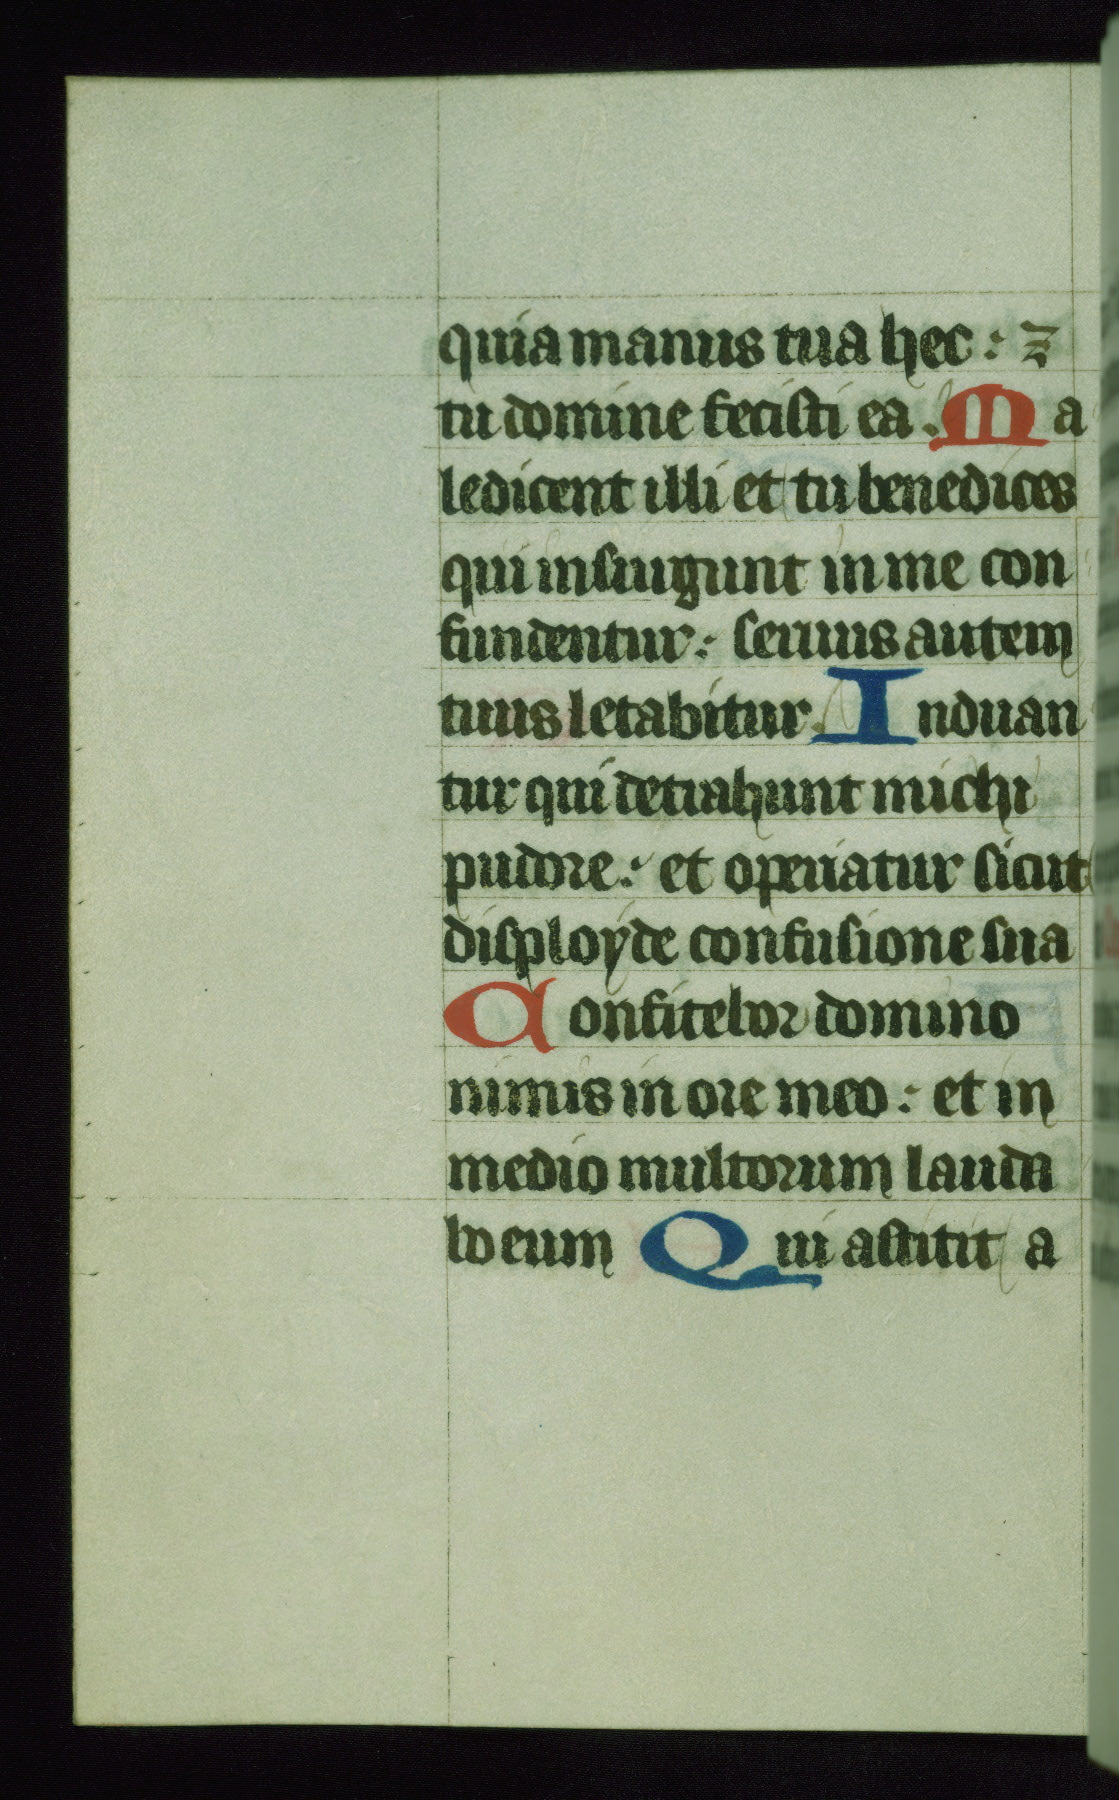 quia manus tua hec : ⁊
tu domine fecisti ea . Ma
ledicent illi et tu benedices
qui insurgunt in me con
fundentur : seruus autem
tuus letabitur . Induan
tur qui detrahunt michi
pudore : et operiatur sicut
disployde confusione sua
Confitebor domino
nimis in ore meo : et in
medio multorum lauda
bo eum Qui astitit a